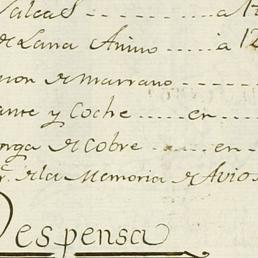 Valcas ..... a 1
de Lana Animo ..... á 12
mon de marrano
ante y Coche ..... en
orga de Cobre ..... en
r. de la Memoria de Avios
Despensa